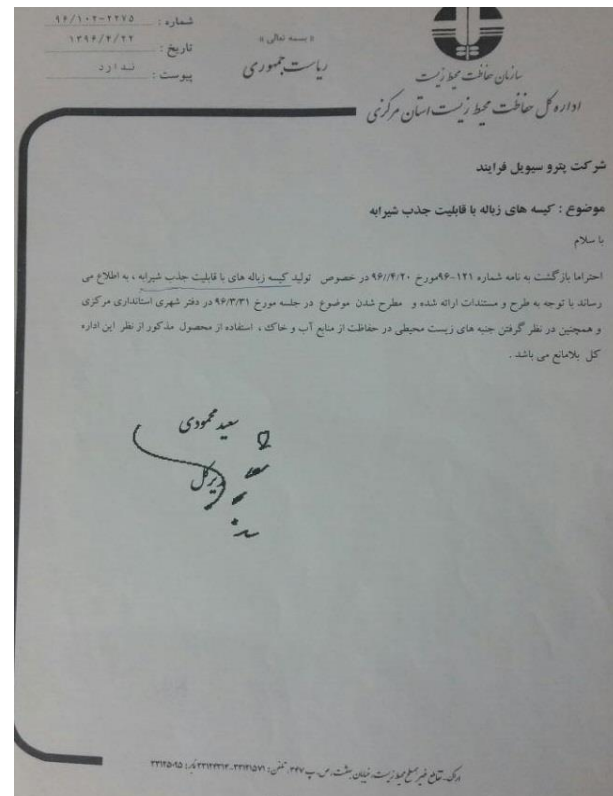 شماره : ۹۶/۱۰۲-۲۲۷۵
تاریخ : ۱۳۹۶/۴/۲۲
پیوست : ندارد
« بسمه تعالی »
ریاست جمهوری
سازمان حفاظت محیط زیست
اداره کل حفاظت محیط زیست استان مرکزی
شرکت پترو سیویل فرایند
موضوع : کیسه های زباله با قابلیت جذب شیرابه
با سلام
احتراما بازگشت به نامه شماره ۱۲۱-۹۶مورخ ۹۶//۴/۲۰ در خصوص تولید کیسه زباله های با قابلیت جذب شیرابه ، به اطلاع می
رساند با توجه به طرح و مستندات ارائه شده و مطرح شدن موضوع در جلسه مورخ ۹۶/۳/۳۱ در دفتر شهری استانداری مرکزی
و همچنین در نظر گرفتن جنبه های زیست محیطی در حفاظت از منابع آب و خاک ، استفاده از محصول مذکور از نظر این اداره
کل بلامانع می باشد .
سعید محمودی
مدیرکل
اراک، تقاطع غیر همسطح محیط زیست، خیابان بهشت، ص.پ ۲۴۷، تلفن: